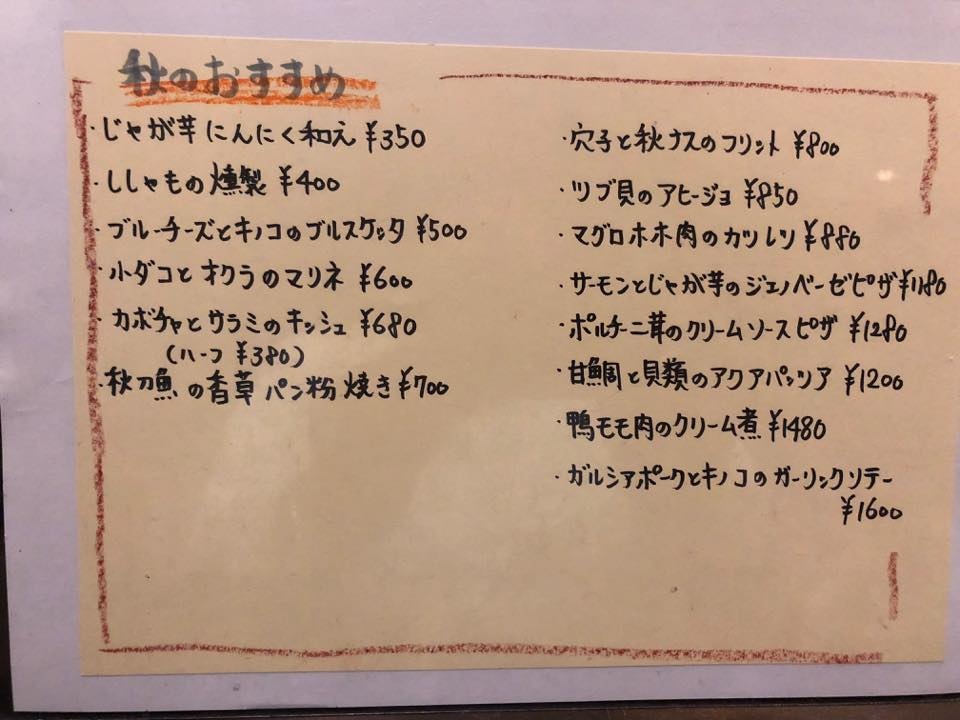 秋のおすすめ
・じゃが芋にんにく和え ¥350
・ししゃもの燻製 ¥400
・ブルーチーズとキノコのブルスケッタ ¥500
・小ダコとオクラのマリネ ¥600
・カボチャとサラミのキッシュ ¥680
(ハーフ ¥380)
・秋刀魚の香草パン粉焼き ¥700
・穴子と秋ナスのフリット ¥800
・ツブ貝のアヒージョ ¥850
・マグロホホ肉のカツレツ ¥880
・サーモンとじゃが芋のジェノベーゼピザ ¥1180
・ポルチーニ茸のクリームソースピザ ¥1280
・甘鯛と貝類のアクアパッツア ¥1200
・鴨モモ肉のクリーム煮 ¥1480
・ガルシアポークとキノコのガーリックソテー
¥1600